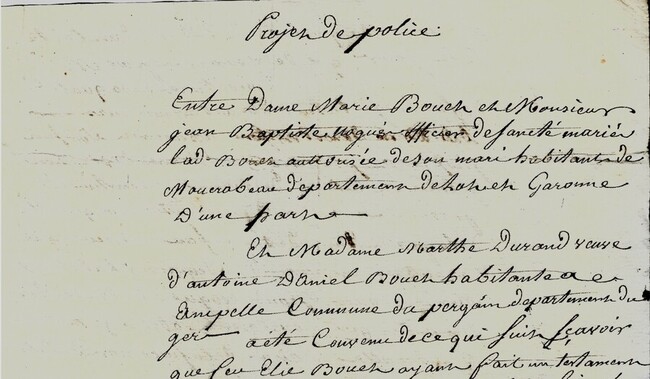 Projet de police
Entre Dame Marie Bouet et Monsieur
jean Baptiste officier de santé mariés
lad. Bouet authorisée de son mari habitants de
Moncrabeau département de Lot et Garonne
D'une part
Et Madame Marthe Durand veuve
d'antoine Daniel Bouet habitante a
Commune du département du
gers a été Convenu de ce qui suit sçavoir
que feu Elie Bouet ayant fait un testament